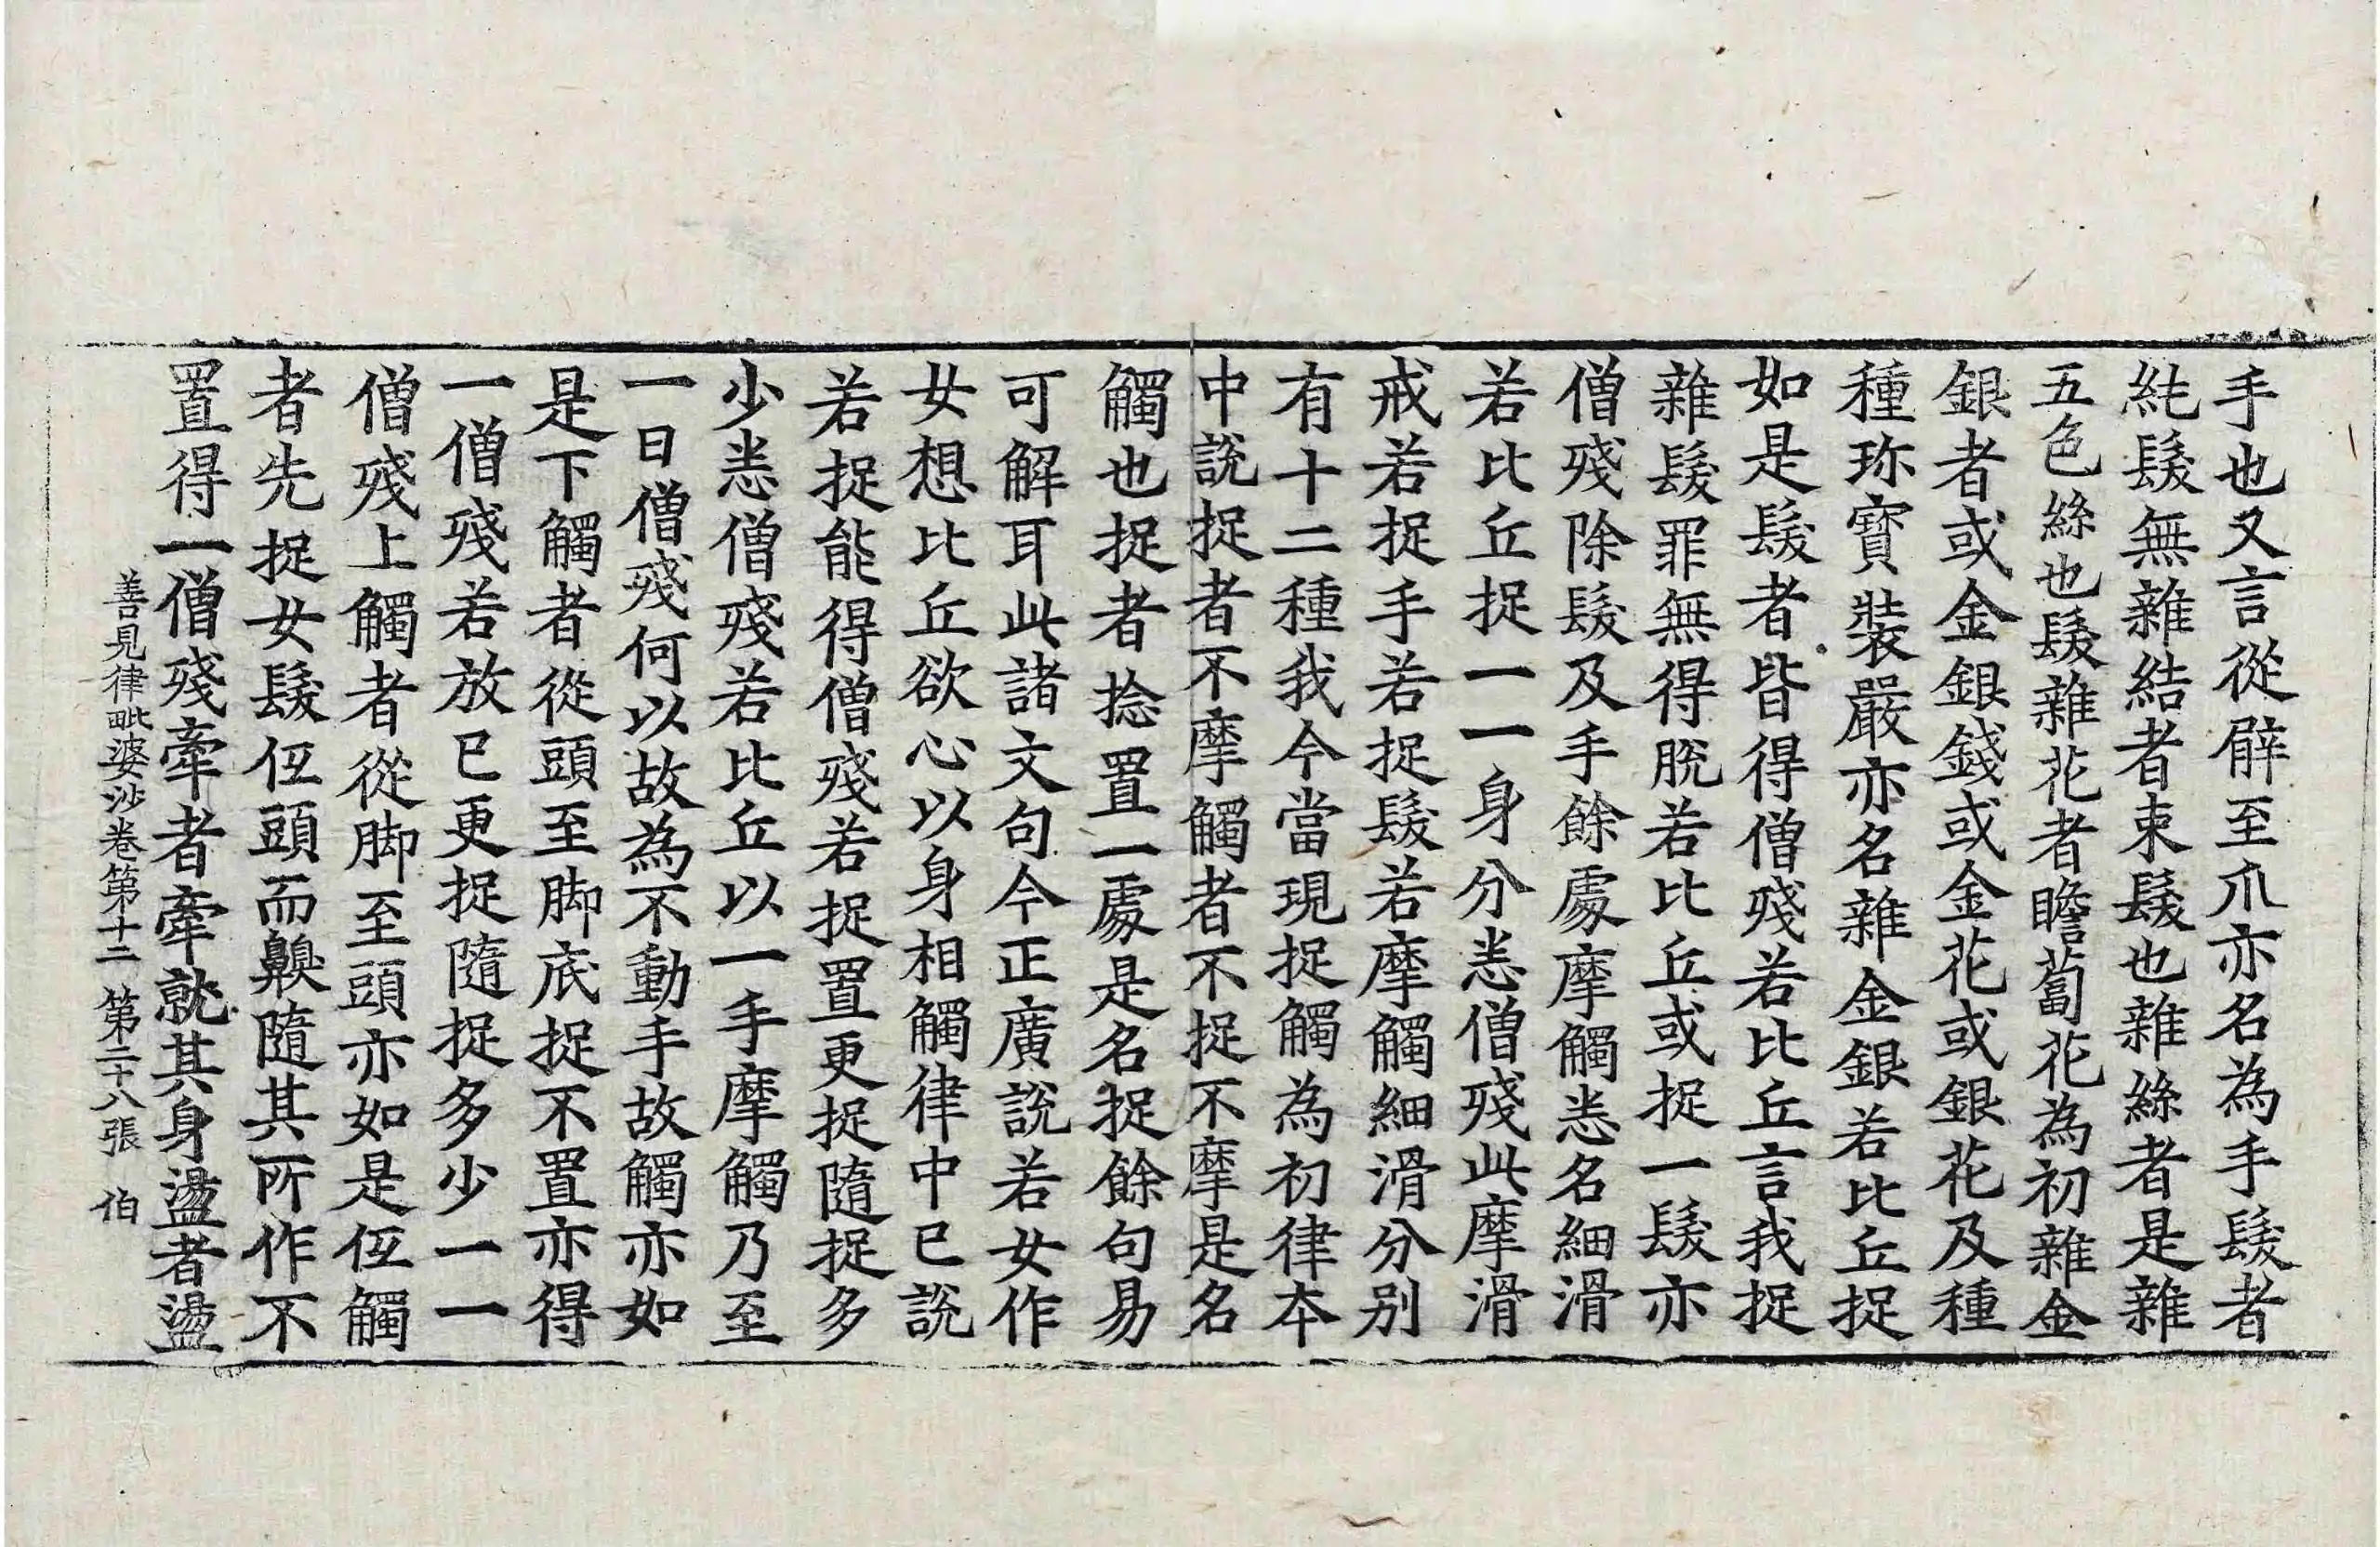 手也又言從臂至爪亦名為手髮者
純髮無雜結者束髮也雜絲者是雜
五色絲也髮雜花者瞻蔔花為初雜金
銀者或金銀錢或金花或銀花及種
種珎寶裝嚴亦名雜金銀若比丘捉
如是髮者皆得僧殘若比丘言我捉
雜髮罪無得脫若比丘或捉一髮亦
僧殘除髮及手餘處摩觸悉名細滑
若比丘捉一一身分悉僧殘此摩滑
戒若捉手若捉髮若摩觸細滑分別
有十二種我今當現捉觸為初律本
中說捉者不摩觸者不捉不摩是名
觸也捉者捻置一處是名捉餘句易
可解耳此諸文句今正廣說若女作
女想比丘欲心以身相觸律中已說
若捉能得僧殘若捉置更捉隨捉多
少悉僧殘若比丘以一手摩觸乃至
一日僧殘何以故為不動手故觸亦如
是下觸者從頭至脚底捉不置亦得
一僧殘若放已更捉隨捉多少一一
僧殘上觸者從脚至頭亦如是伍觸
者先捉女髮伍頭而齅隨其所作不
置得一僧殘牽者牽就其身盪者盪
善見律毗婆沙卷第十二 第二十八張 伯